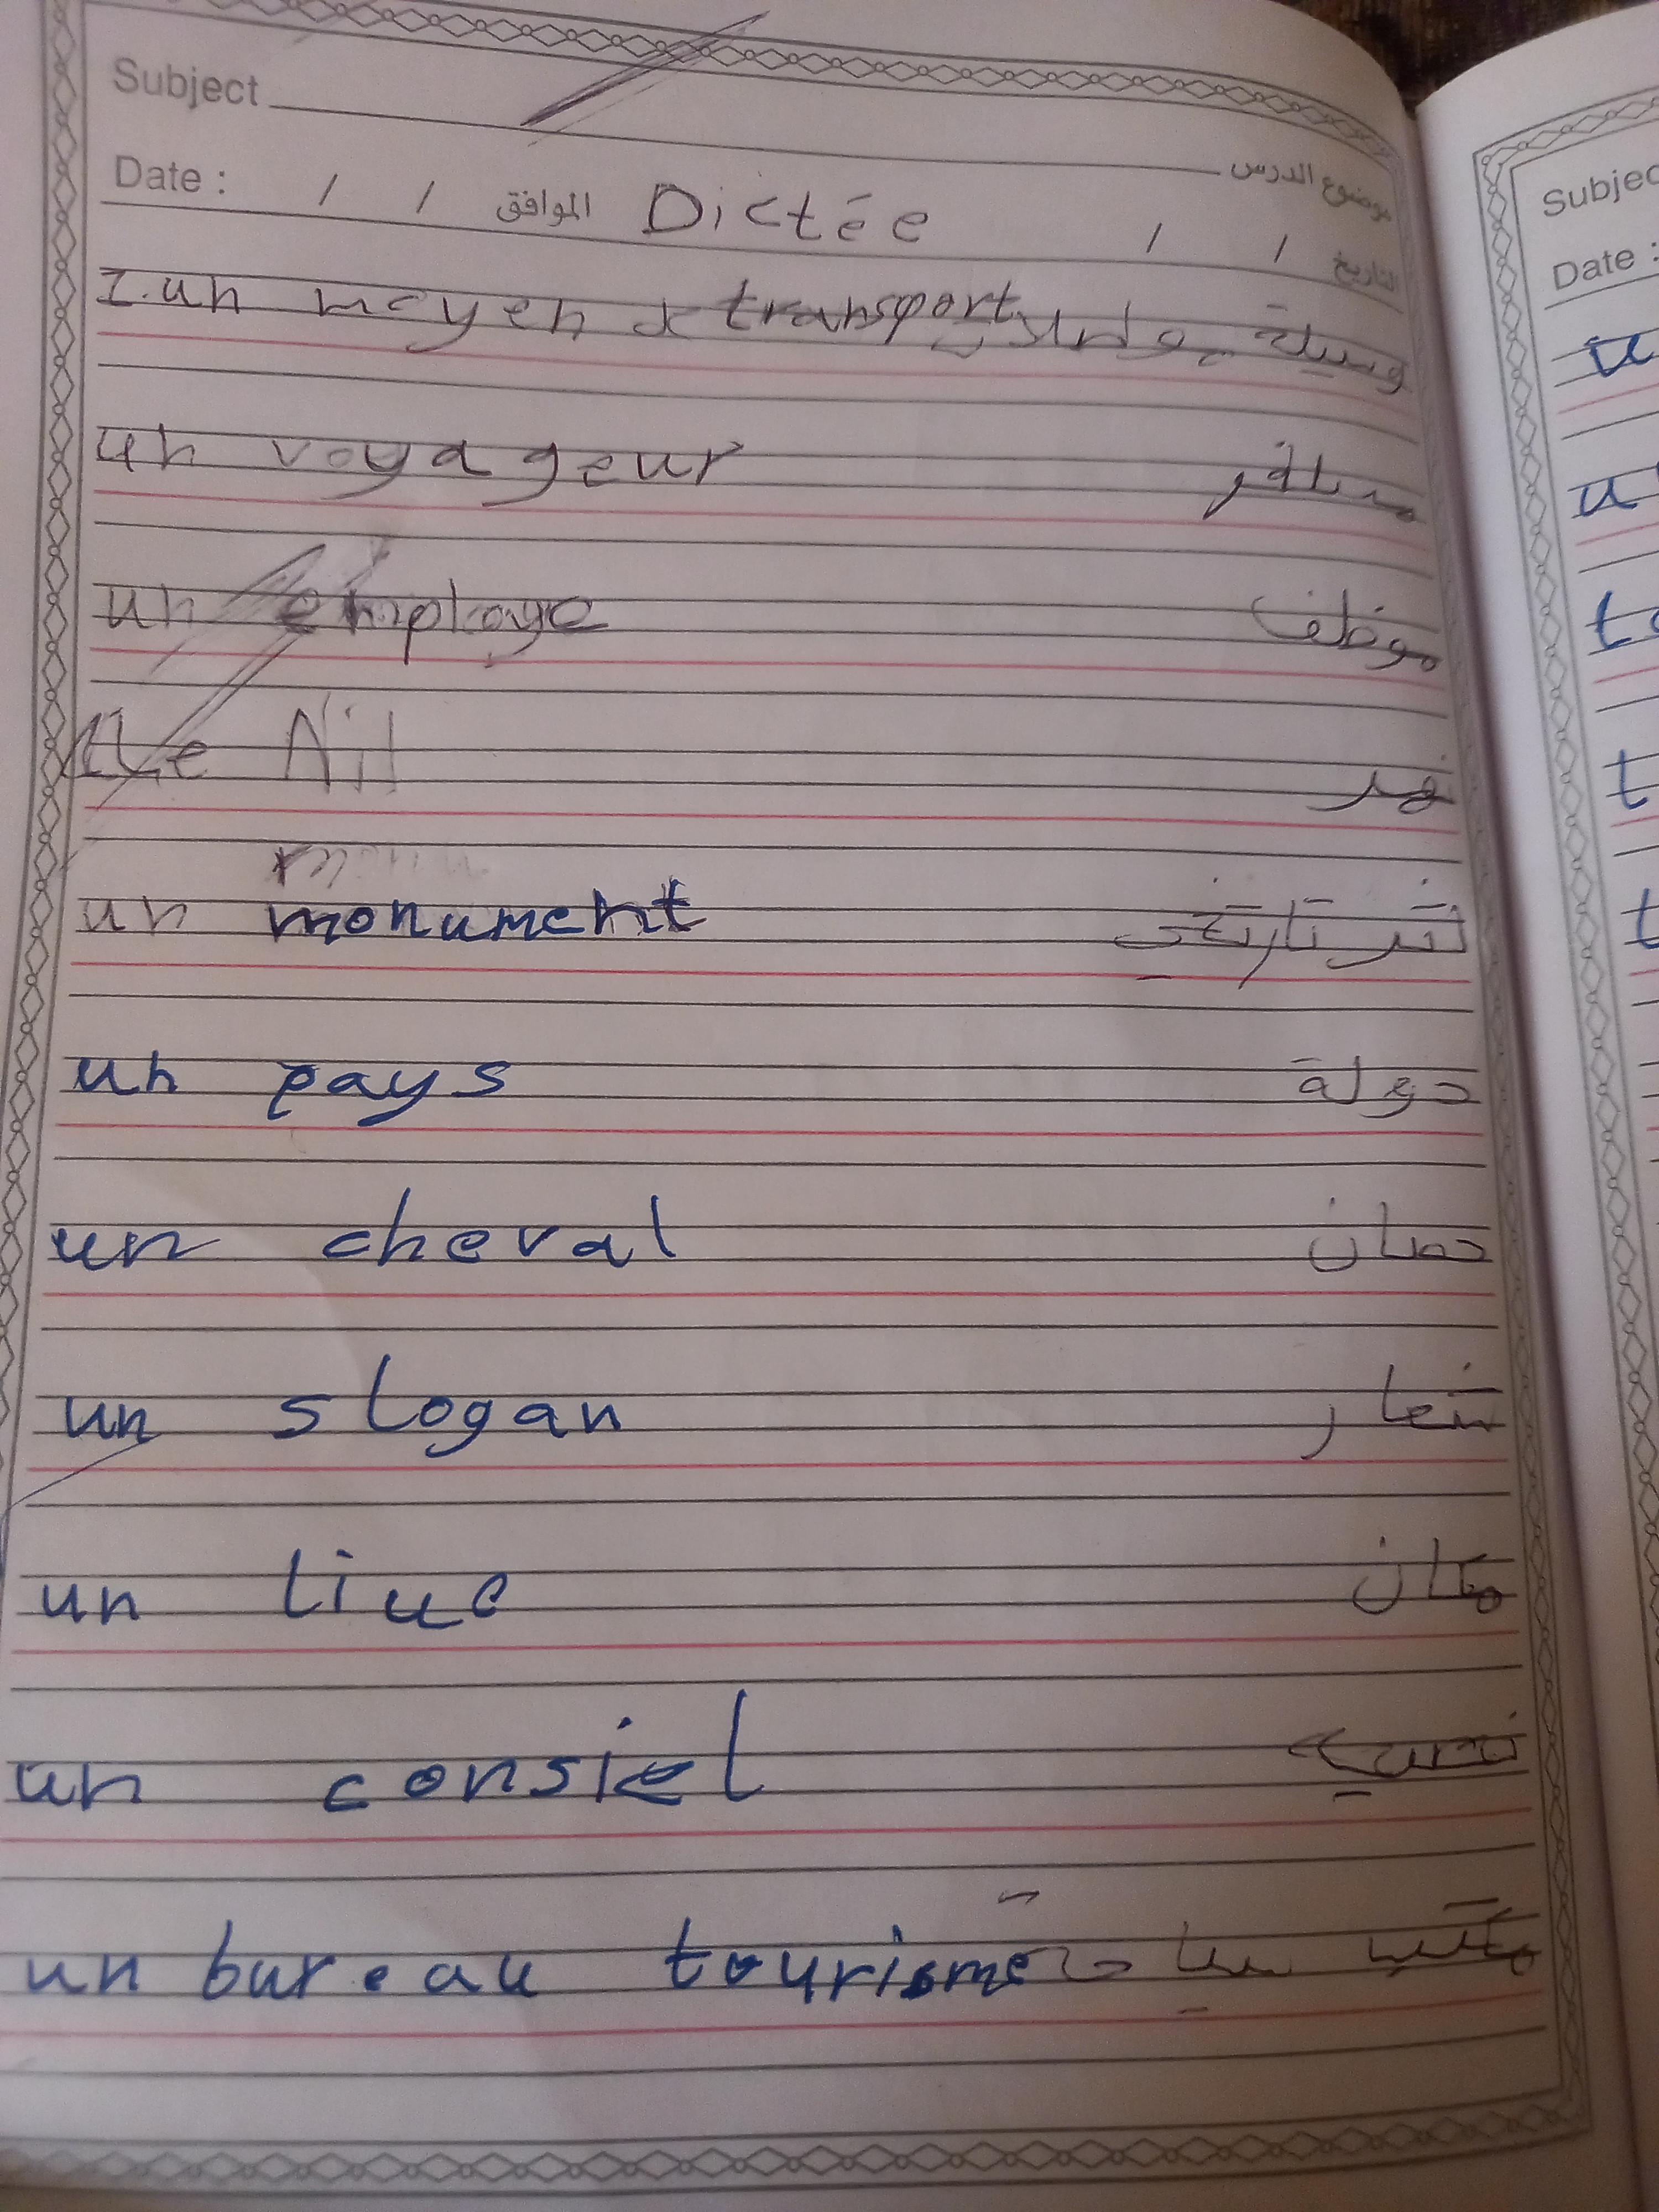 Subject موضوع الدرس
Date : / / الموافق Dictée / / التاريخ
1.un moyen transport وسيلة مواصلات
un voyageur مسافر
un employe موظف
Le Nil نهر
un monument اثر تاريخي
un pays دولة
un cheval حصان
un slogan شعار
un liue مكان
un consiel نصيحه
un bureau tourisme مكتب سياحة
Subjec
Date :
u
u
t
t